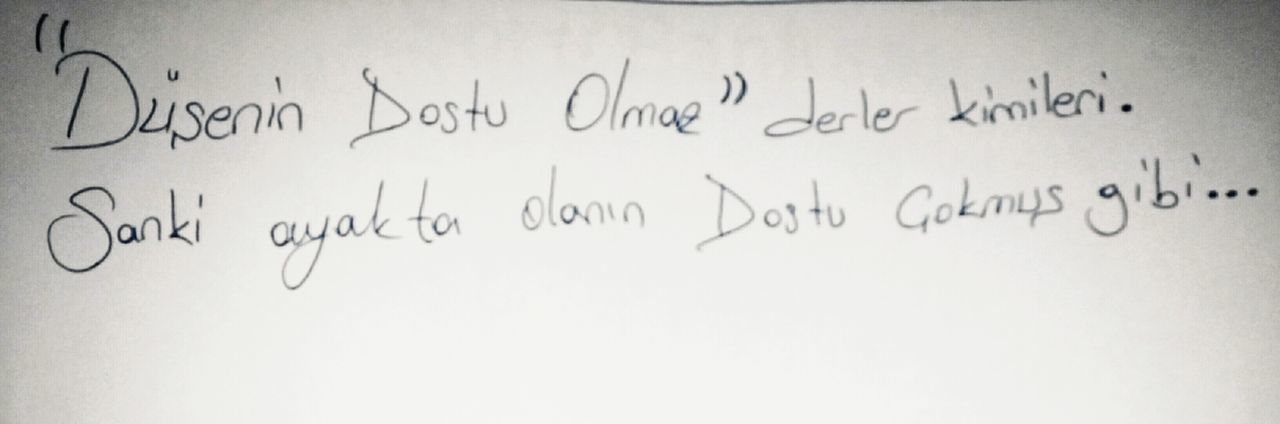 "Düşenin Dostu Olmaz" derler kimileri.
Sanki ayakta olanın Dostu Çokmuş gibi...